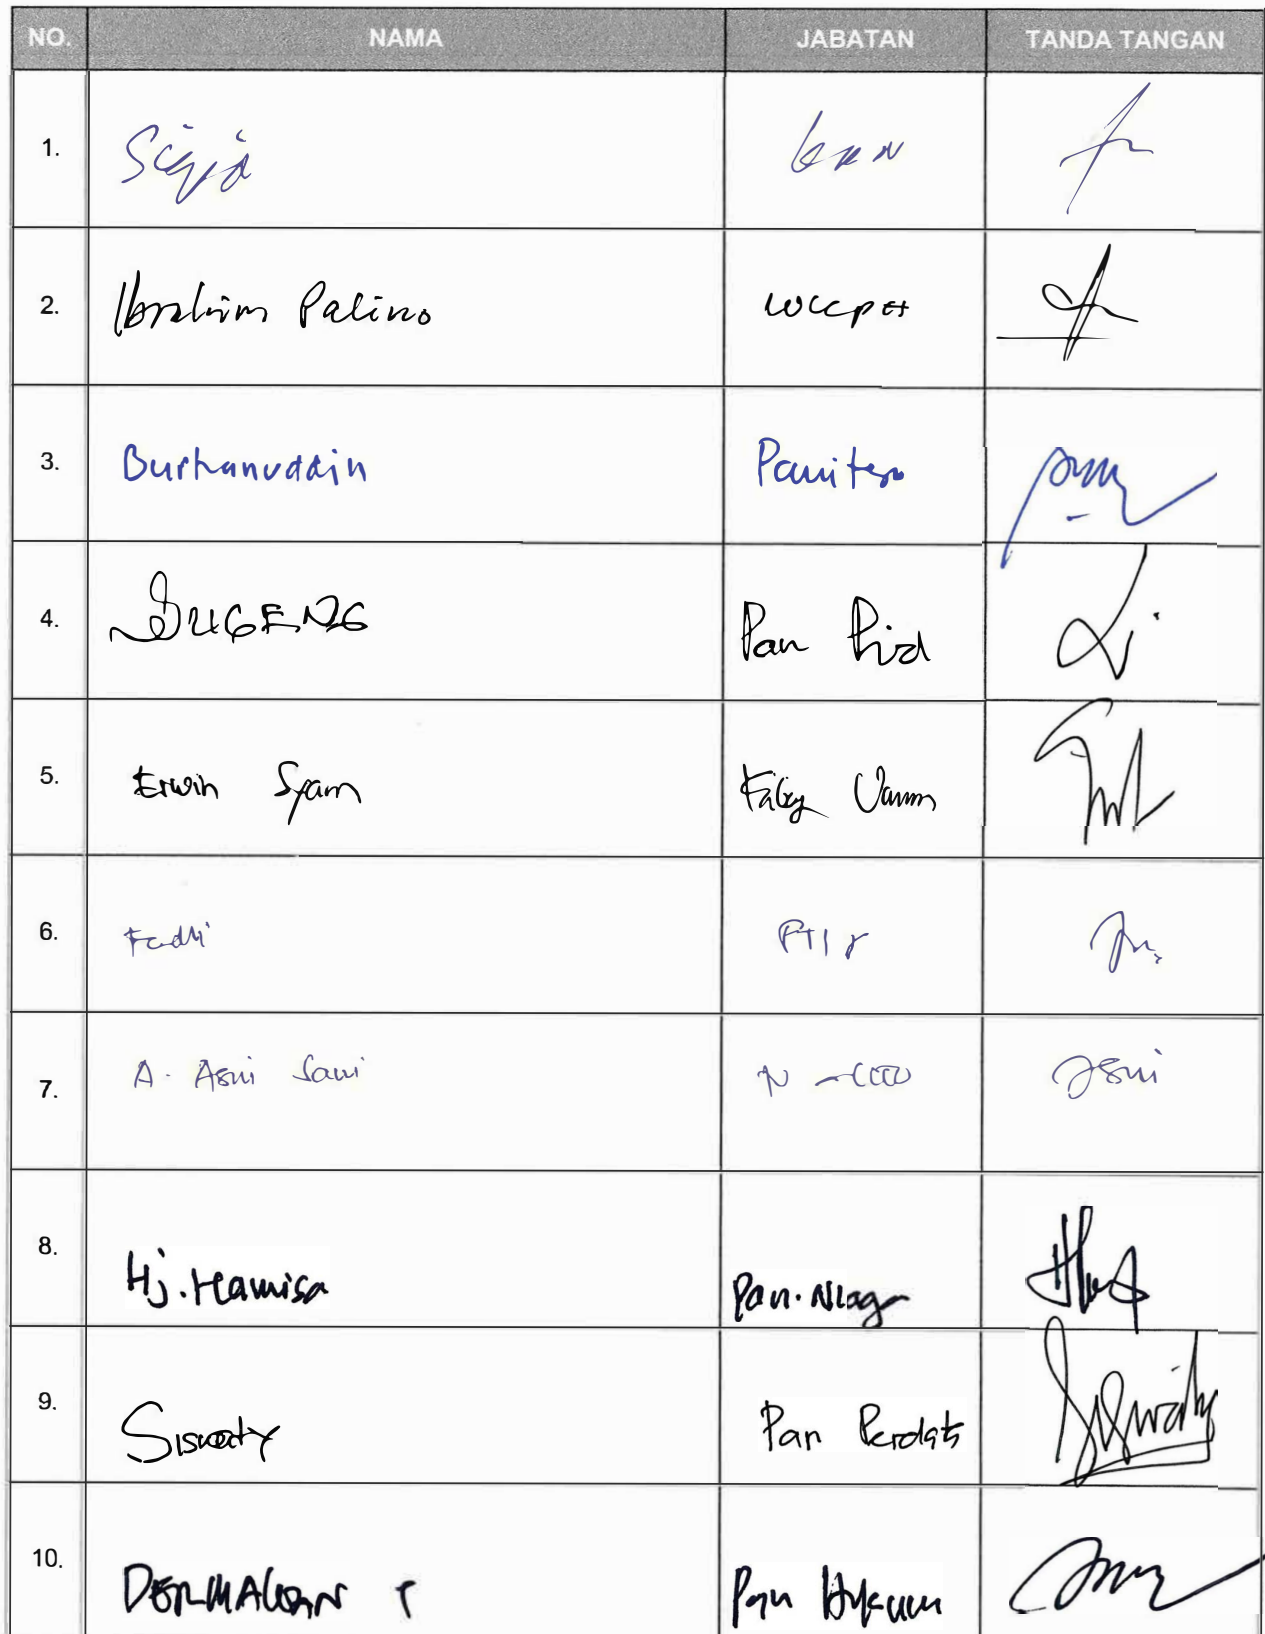 NO. NAMA JABATAN TANDA TANGAN
1.
2. Ibrahim Palino
3. Burhanuddin Panitera
4. SUGENG Pan Pid
5. Erwin Syam Kabag Umum
6. Fadli
7. A. Asni Sani
8. Hj. Hamisa Pan. Niaga
9. Siswaty Pan Perdata
10. DERMAWAN Pan Hukum